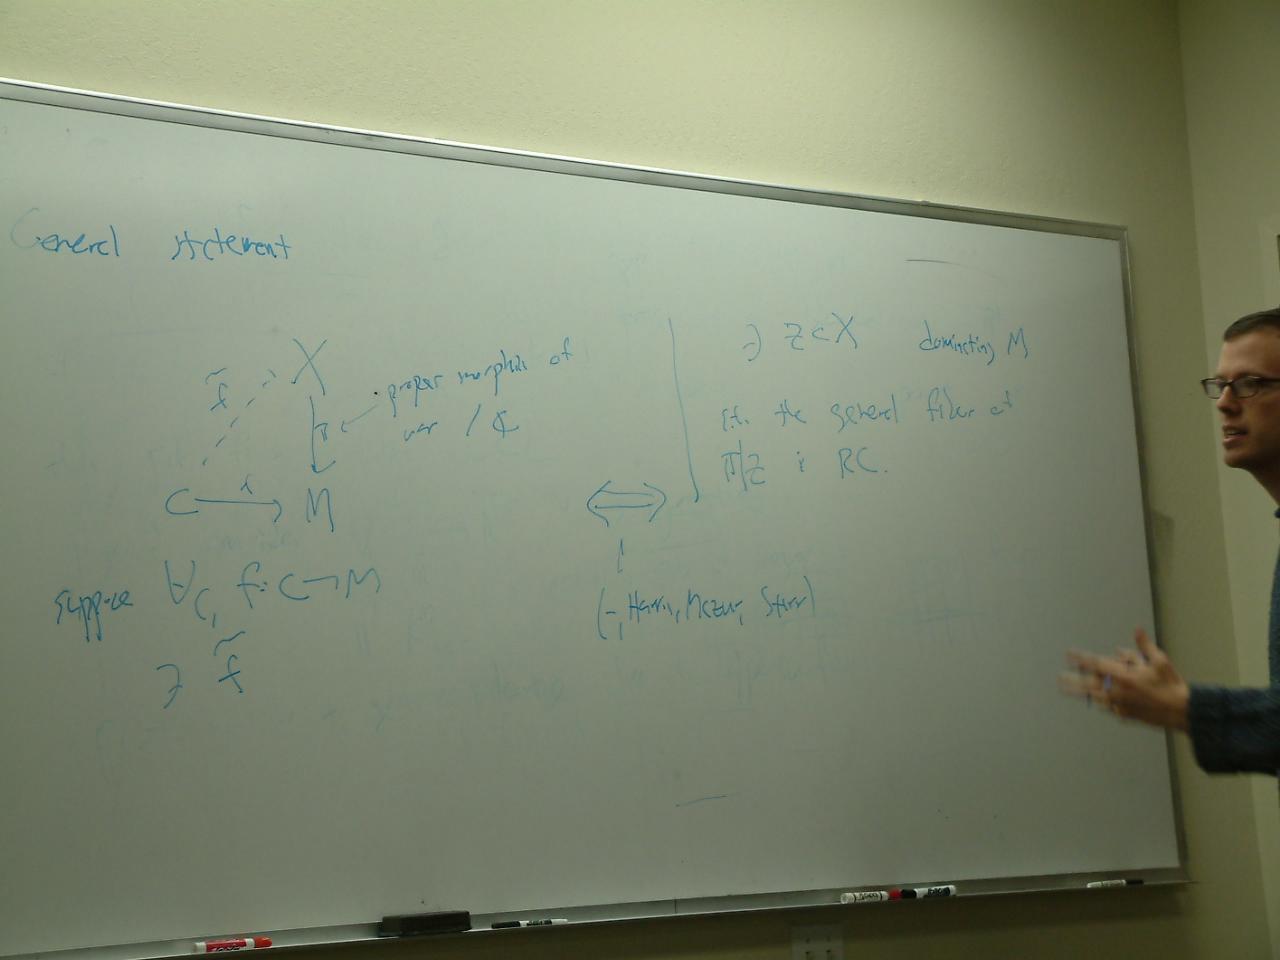 General statement
X
f̃
π
proper morphism of
var / ℂ
C f M
suppose ∀ C, f: C → M
∃ f̃
⟺
(-, Harris, Mazur, Starr)
∃ Z ⊂ X dominating M
s.t. the general fiber of
π|Z is RC.